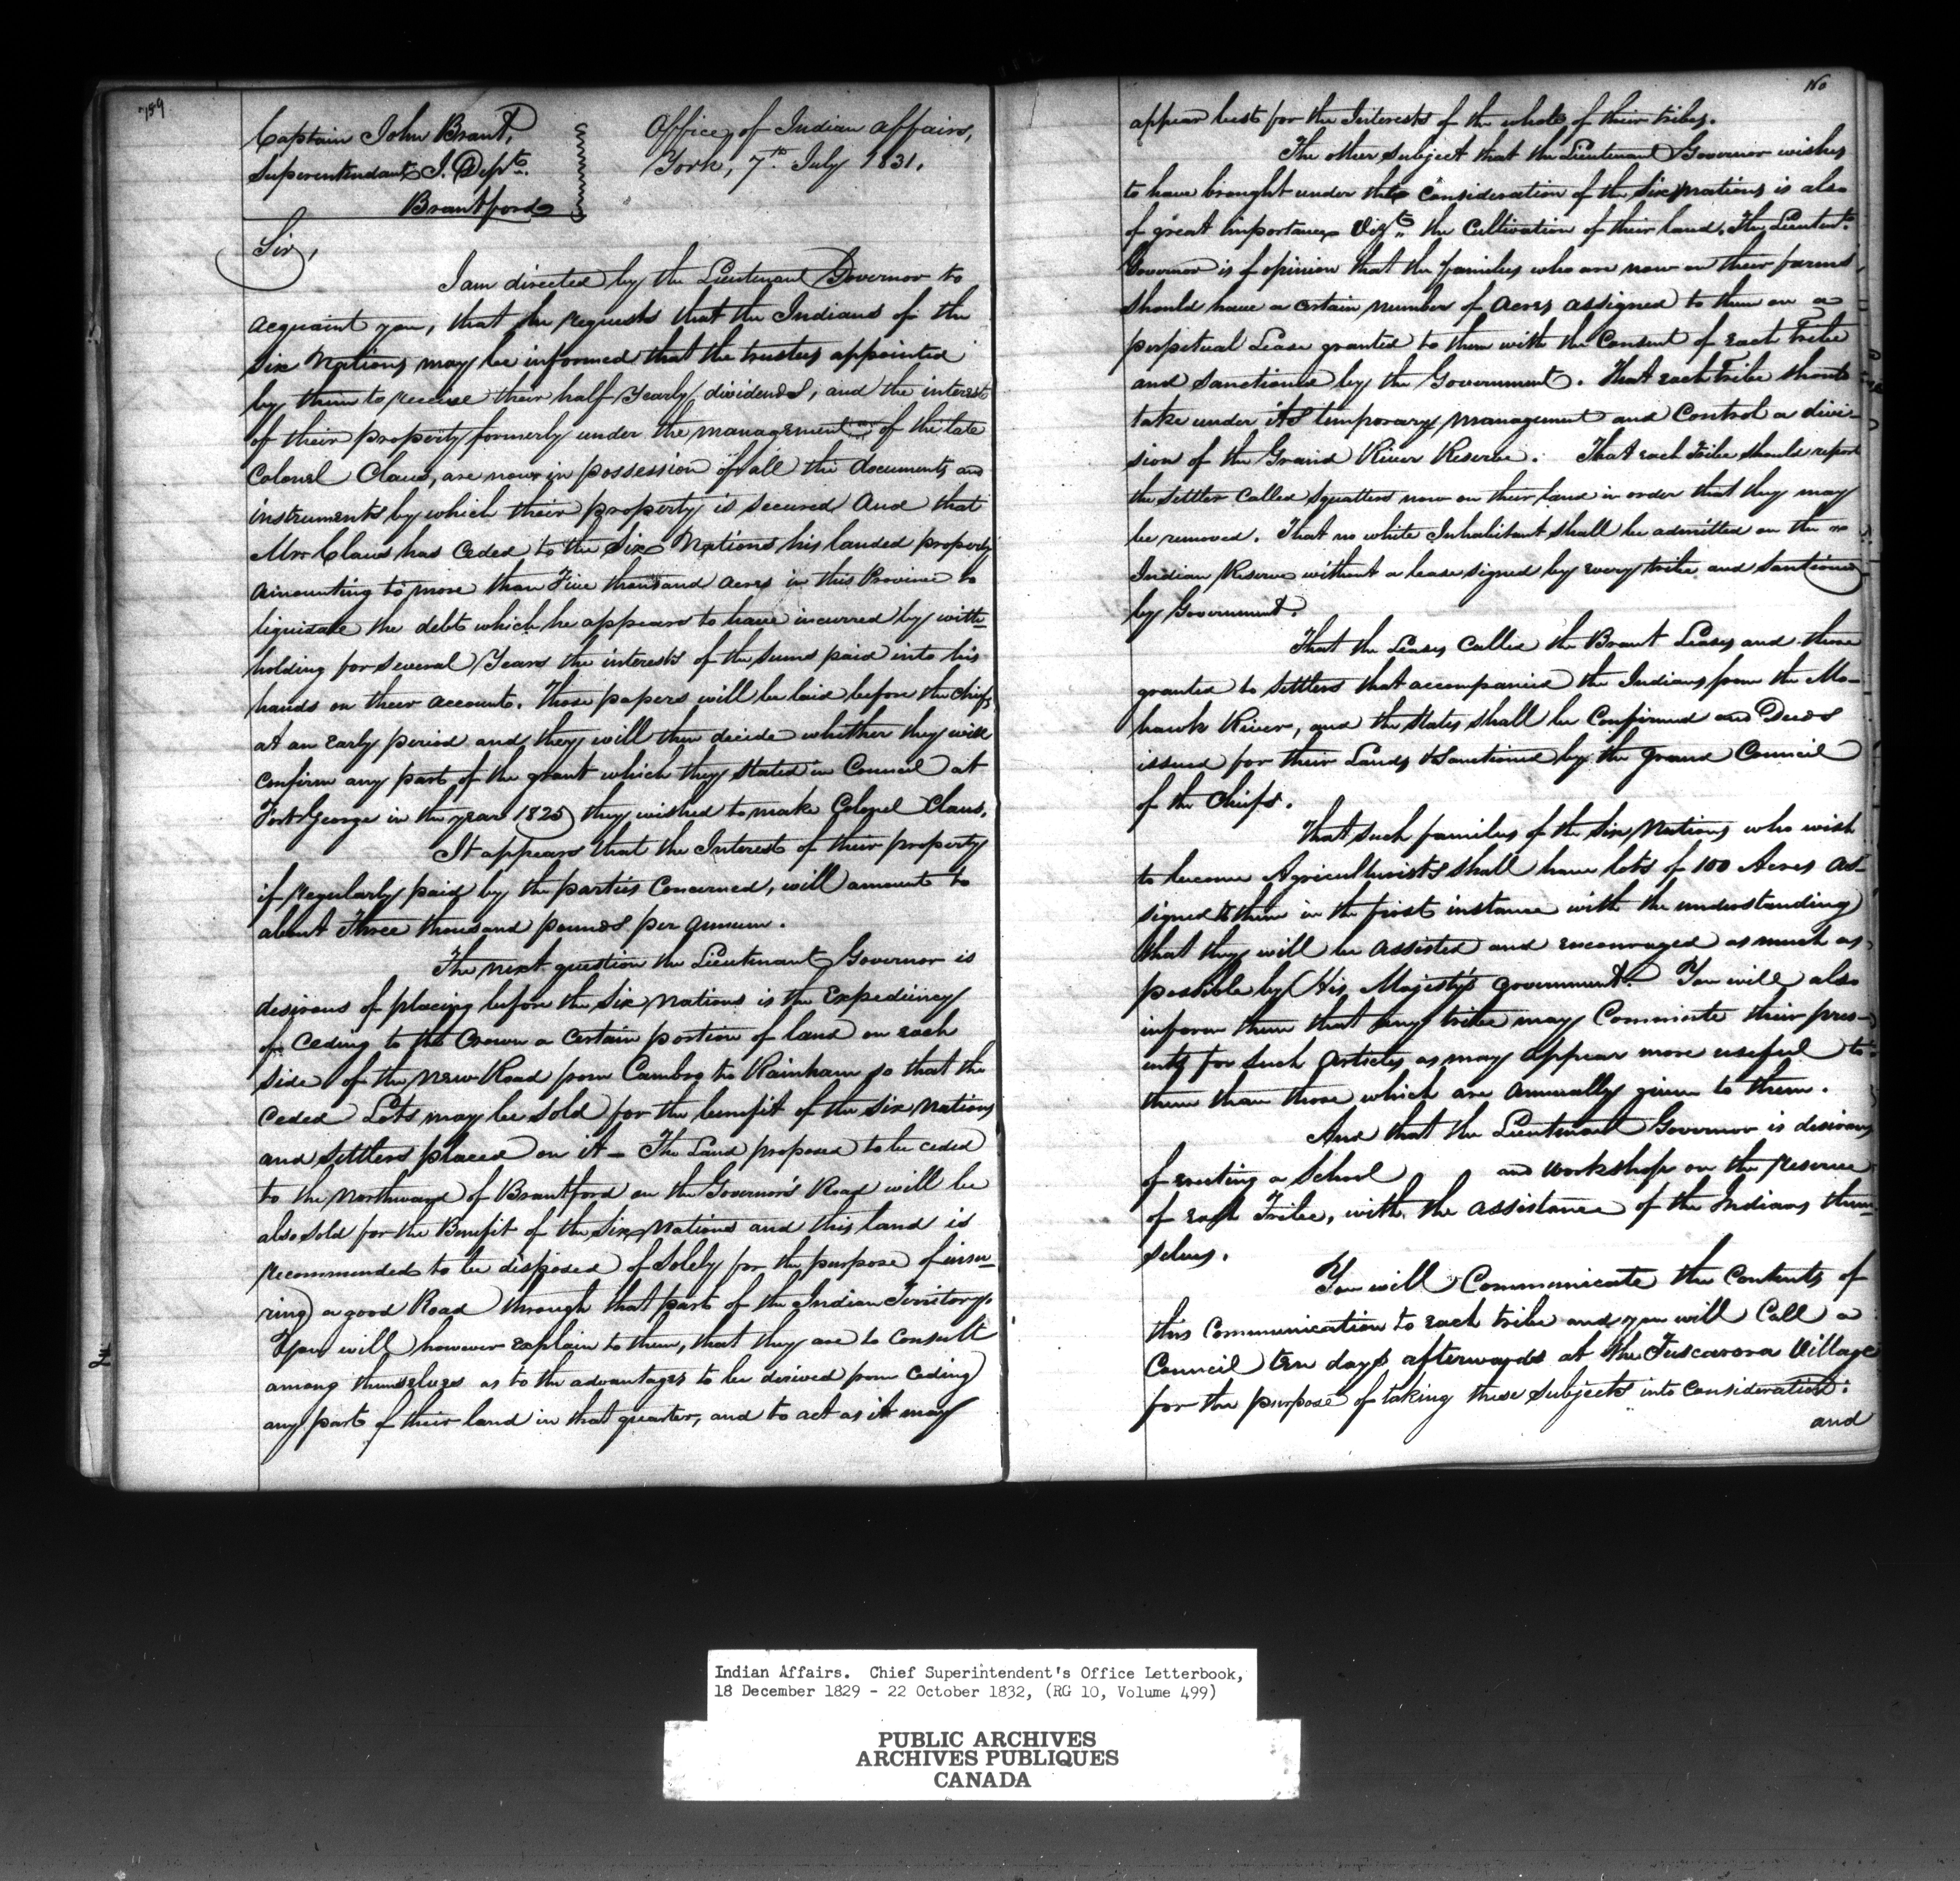 159
Captain John Brant,
Superentendant I. Dept.
Brantford
Office, of Indian affairs,
York, 7th July 1831.
Sir,
I am directed by the Lieutenant Governor to
acquaint you, that he requests that the Indians of the
Six Nations may be informed that the trustees appointed
by them to receive their half Yearly dividends, and the interest
of their property formerly under the management of the late
Colonel Claus, are now in possession of all the documents and
instruments by which their property is secured And that
Mr Claus has Ceded to the Six Nations his landed property
amounting to more than Five thousand acres in this Province to
liquidate the debt which he appears to have incurred by with-
holding for several Years the interests of the sums paid into his
hands on their account. Those papers will be laid before the Chiefs
at an Early period and they will then decide whether they will
confirm any part of the grant which they stated in Council at
Fort George in the year 1825 they wished to make Colonel Claus.
It appears that the Interest of their property
if regularly paid by the parties Concerned, will amount to
about Three thousand pounds per annum.
The next question the Lieutenant Governor is
desirous of placing before the Six Nations is the Expediency
of Ceding to the Crown a Certain portion of land on each
Side of the New Road from Cambro to Rainham so that the
Ceded Lots may be sold for the benefit of the Six Nations
and settlers placed on it – The Land proposed to be ceded
to the Northward of Brantford on the Governor's Road will be
also sold for the Benefit of the Six Nations and this land is
recommended to be disposed of Solely for the purpose of insu-
ring a good Road through that part of the Indian Territory.
You will however explain to them, that they are to Consult
among themselves as to the advantages to be derived from Ceding
any part of their land in that quarter, and to act as it may
appear best for the Interests of the whole of their tribes.
The other subject that the Lieutenant Governor wishes
to have brought under the Consideration of the Six Nations is also
of great importance Vizt. the Cultivation of their land. The Lieutent.
Governor is of opinion that the families who are now on their farms
should have a certain number of Acres assigned to them on a
perpetual Lease granted to them with the Consent of Each Tribe
and Sanctioned by the Government. That each Tribe should
take under its temporary management and Control a divi-
sion of the Grand River Reserve. That each Tribe should report
the settler Called Squatters now on their land in order that they may
be removed. That no white Inhabitant shall be admitted on the
Indian Reserve without a lease signed by every tribe and Sanctioned
by Government.
That the Leases Called the Brant Leases and those
granted to Settlers that accompanied the Indians from the Mo-
hawk River, and the States shall be Confirmed and Deeds
issued for their Lands & Sanctioned by the Grand Council
of the Chiefs.
That such families of the Six Nations who wish
to become Agriculturists shall have lots of 100 Acres as-
signed to them in the first instance with the understanding
that they will be assisted and encouraged as much as
possible by His Majesty's Government. You will also
inform them that any tribe may Commute their pres-
ents for such articles as may appear more useful to
them than those which are annually given to them.
And that the Lieutenant Governor is desirous
of erecting a School and workshops on the reserve
of Each Tribe, with the assistance of the Indians them-
selves.
You will Communicate the Contents of
this Communication to each tribe and you will Call a
Council ten days afterwards at the Tuscarora Village
for the purpose of taking these subjects into Consideration:
and
Indian Affairs. Chief Superintendent's Office Letterbook,
18 December 1829 - 22 October 1832, (RG 10, Volume 499)
PUBLIC ARCHIVES
ARCHIVES PUBLIQUES
CANADA